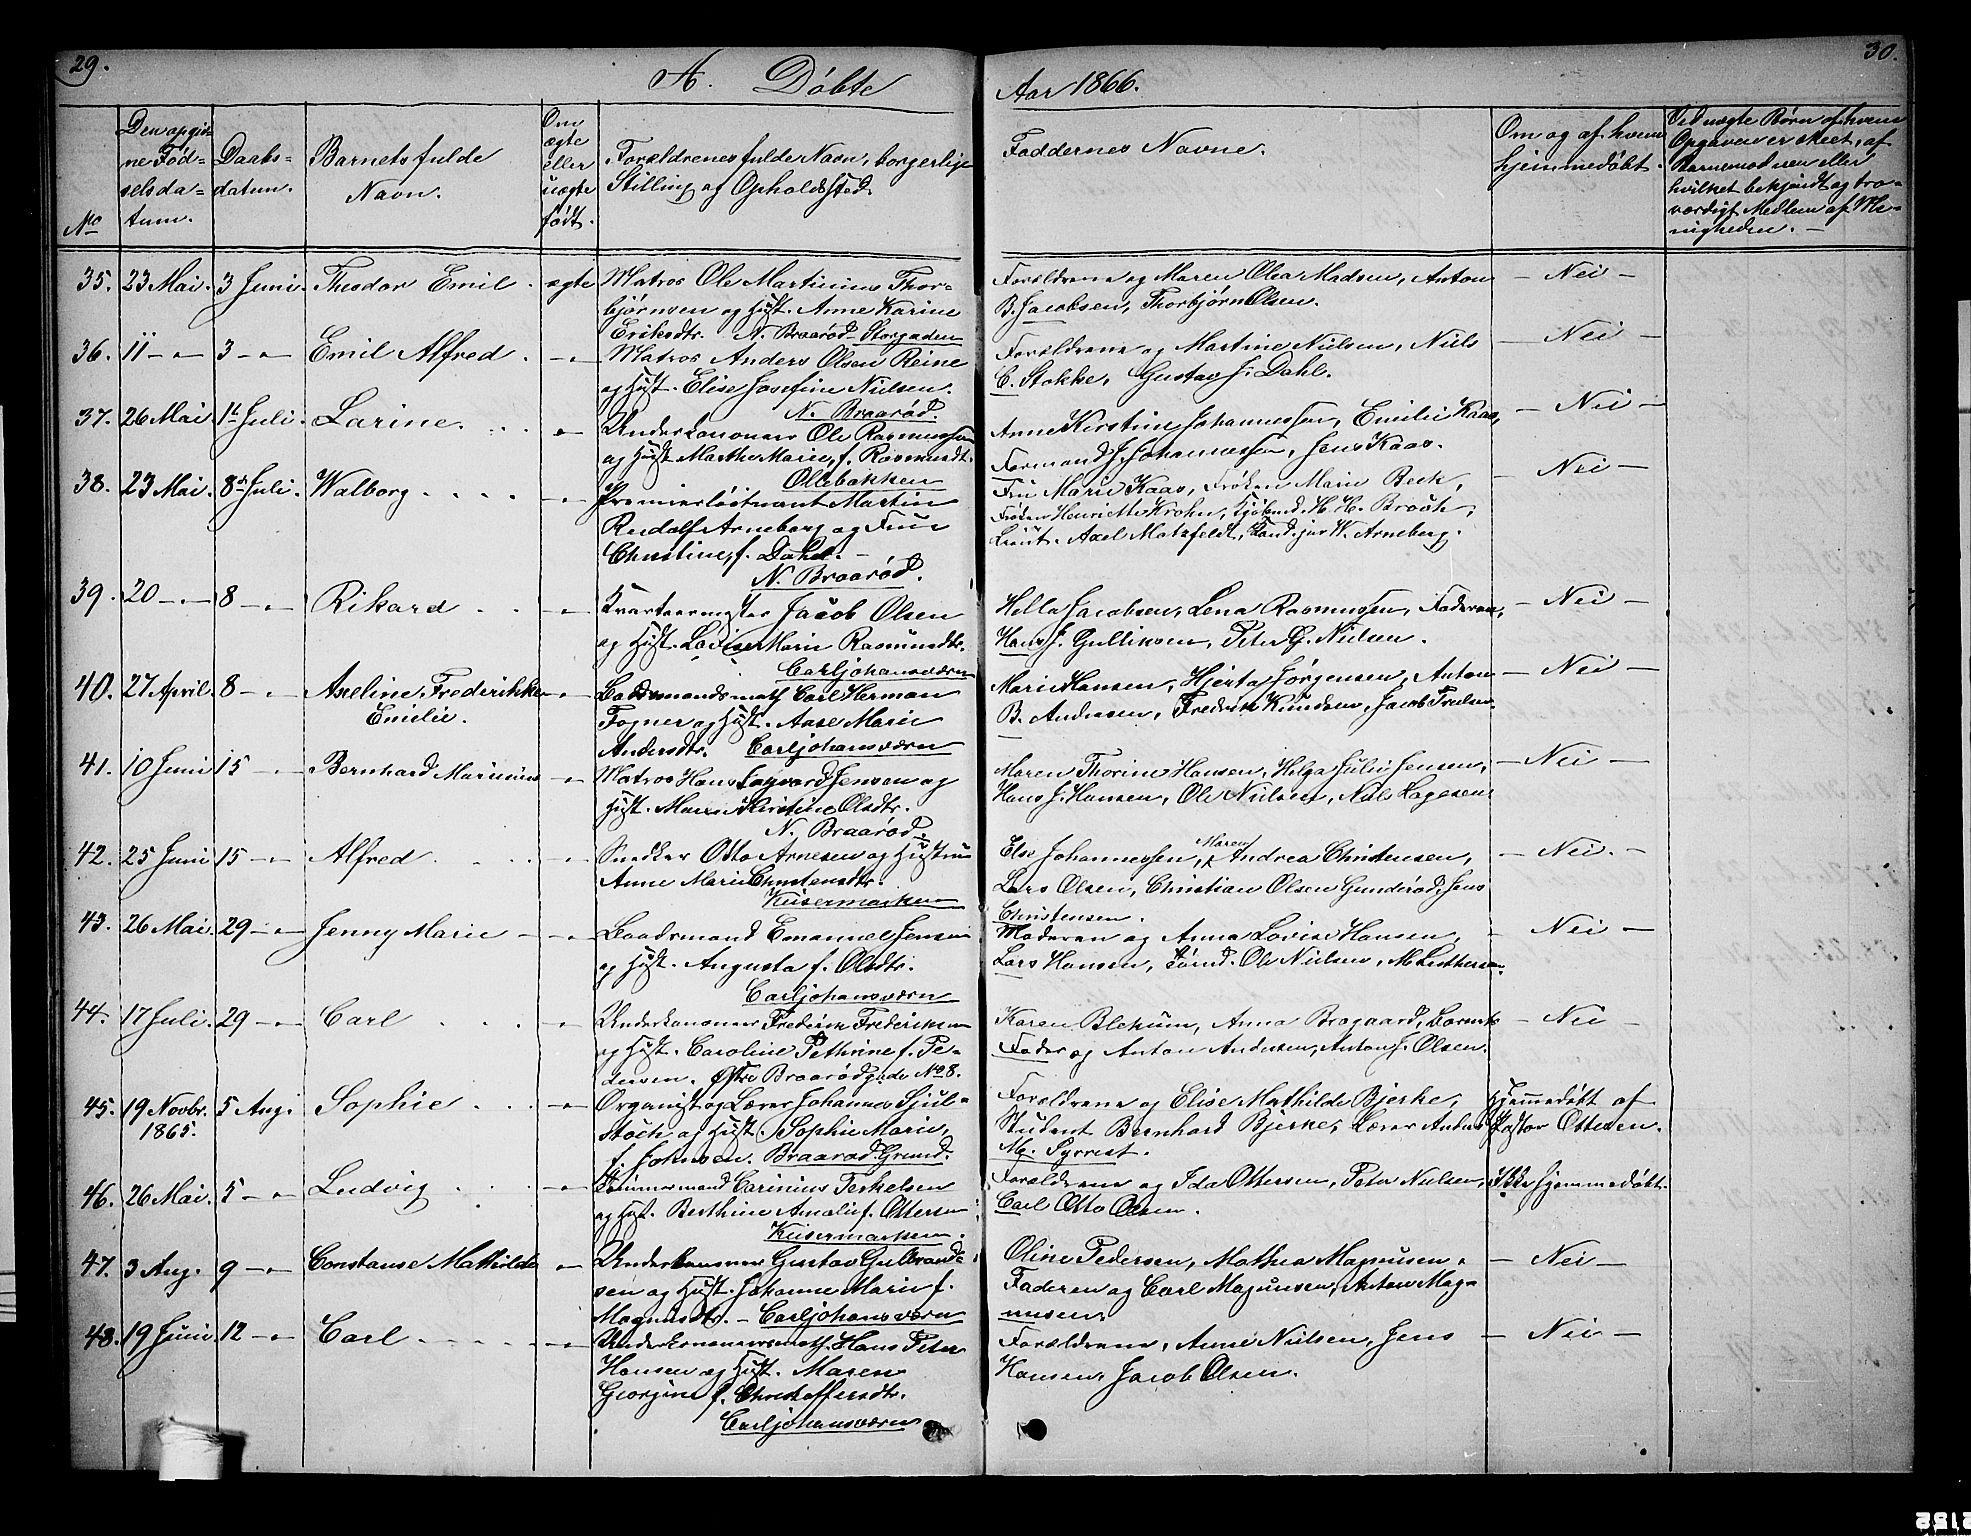 29.
A. Døbte
Aar 1866.
30.
No
Den opgiv-
ne Fød-
selsda-
tum.
Daabs-
datum.
Barnets fulde
Navn.
Om
ægte
eller
uægte
født.
Forældrenes fulde Navn, borgerlige
Stilling og Opholdssted.
Faddernes Navne.
Om og af hvem
hjemmedøbt.
Ved uægte Børn af hvem
Opgaven er skeet, af
Barnemoderen eller
hvilket bekjendt og tro-
værdigt Medlem af Me-
nigheden. —
35. 23 Mai. 3 Juni. Theodor Emil. ægte Matros Ole Martinius Thor-
bjørnsen og Hust. Anne Karine
Eriksdtr. N. Braarød Storgaden
Forældrene og Maren Olea Madsen, Anton
B. Jacobsen, Thorbjørn Olsen.
— Nei —
36. 11 —"— 3 —"— Emil Alfred. —"— Matros Anders Olsen Reine
og Hust. Elise Josefine Nielsen.
N. Braarød.
Forældrene og Martine Nielsen, Niels
C. Stokke, Gustav J. Dahl.
— Nei —
37. 26 Mai. 1ste Juli. Larine. —"— Underkanoner Ole Rasmussen
og Hust Marthe Marie, f. Rasmusdt.
Ollebakken
Anne Kirstine Johannessen, Emilie Kaas,
Formand J. Johannessen, Jens Kaas.
— Nei —
38. 23 Mai. 8de Juli. Walborg —"— Premierløitnant Martin
Rudolf Arneberg og Frue
Christine, f. Dahl. —
N. Braarød.
Fru Marie Kaas, Frøken Marie Beck,
Frøken Henriette Krohn, Kjøbmd. H. H. Broch,
Lieut. Axel Motzfeldt, Cand. jur W. Arneberg.
— Nei —
39. 20 —"— 8 —"— Rikard —"— Kvarteermester Jacob Olsen
og Hust. Lovise Marie Rasmusdtr.
Carljohansværn
Hella Jacobsen, Lena Rasmussen, Faderen,
Hans J. Gulliksen, Peter G. Nielsen.
— Nei —
40. 27 April. 8 —"— Axeline Frederikke
Emilie. —"— Baadsmandsmath Carl Herman
Fogner og Hust. Aase Marie
Andersdtr. Carljohansværn
Marie Hansen, Hjerta Jørgensen, Anton
B. Andersen, Fredrik Knudsen, Jacob Truelsen.
— Nei —
41. 10 Juni 15 —"— Bernhard Marinius —"— Matros Hans Ingvard Jensen og
Hust. Maren Kirstine Olsdtr.
N. Braarød.
Maren Thorine Hansen, Helga Julie Jensen,
Hans J. Hansen, Ole Nielsen, Nils Lagesen.
— Nei —
42. 25 Juni 15 —"— Alfred. —"— Snedker Otto Arnesen og Hustru
Anne Marie Christensdtr.
Keisermarken
Else Johannessen, Maren Andrea Christensen,
Lars Olsen, Christian Olsen Gunderød, Jens
Christensen.
— Nei. —
43. 26 Mai. 29 —"— Jenny Marie —"— Baadsmand Emanuel Jensen
og Hust. Augusta f. Olsdtr.
Carljohansværn
Moderen og Anna Lovise Hansen,
Lars Hansen, Tømd. Ole Nielsen, M. Lutherson.
— Nei —
44. 17 Juli. 29 —"— Carl —"— Underkanoner Frederik Frederiksen
og Hust. Caroline Pethrine f. Pe-
dersen. Østre Braarødgade No 8.
Karen Blekum, Anna Bragaard, Barnets
Fader og Anton Andersen, Anton J. Olsen.
— Nei —
45. 19 Novbr.
1865. 5 Aug. Sophie —"— Organist og Lærer Johannes Sjul-
stoch og Hust. Sophie Marie,
f. Johnsen. Braarød Grund.
Forældrene og Elise Mathilde Bjerke,
Student Bernhard Bjerke, Lærer Anders
Mg. Syrrist.
Hjemmedøbt af
Pastor Ottesen.
46. 26 Mai. 5 —"— Ludvig —"— Tømmermand Carinius Terkelsen
og Hust. Berthine Amalie f. Ottersen
Keisermarken.
Forældrene og Ida Ottersen, Peter Nielsen,
Carl Otto Olsen.
Ikke hjemmedøbt.
47. 3 Aug. 9 —"— Constanse Mathilde —"— Underkanoner Gustav Gulbrand-
sen og Hust. Johanne Marie f.
Magnusdtr. — Carljohansværn
Oline Pedersen, Mathea Magnusen,
Faderen og Carl Magnusen, Anton Mag-
nusen.
— Nei —
48. 19 Juni. 12 —"— Carl —"— Underkanonersmath Hans Peter
Hansen og Hust. Maren
Georgine f. Christoffersdtr.
Carljohansværn
Forældrene, Anne Nielsen, Jens
Hansen, Jacob Olsen.
— Nei —